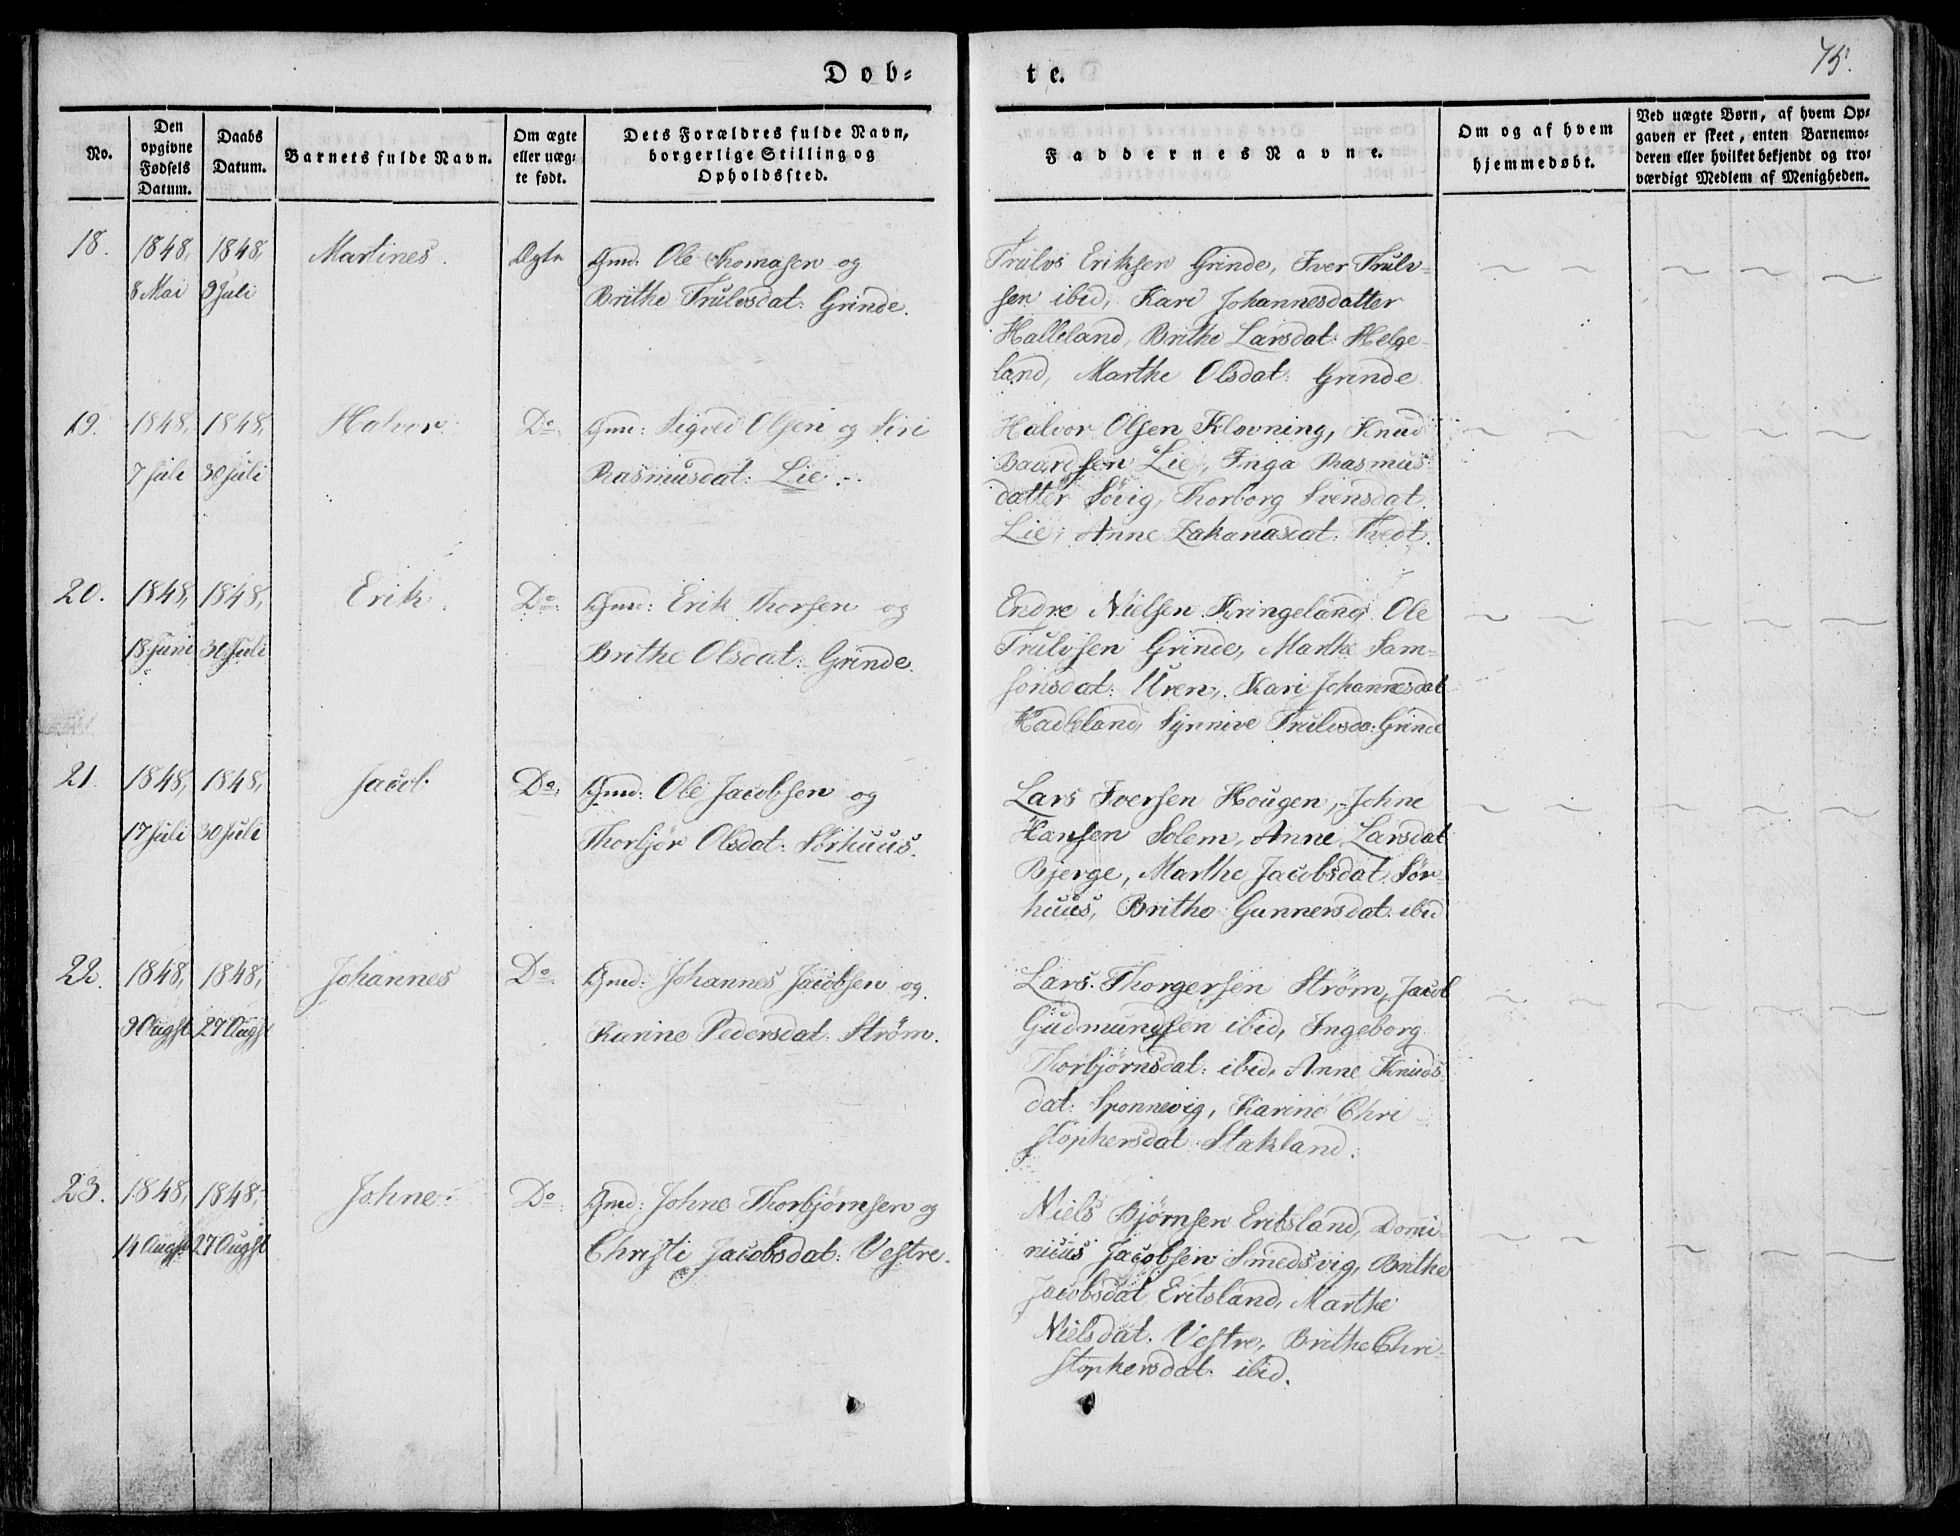 Døb-
te.
75.
No.
Den opgivne Fødsels Datum.
Daabs Datum.
Barnets fulde Navn.
Om ægte eller uægte født.
Dets Forældres fulde Navn, borgerlige Stilling og Opholdssted.
Faddernes Navne.
Om og af hvem hjemmedøbt.
Ved uægte Børn, af hvem Opgaven er skeet, enten Barnemoderen eller hvilket bekjendt og troværdigt Medlem af Menigheden.
18.
1848, 8 Mai
1848, 9 Juli
Martines.
Ægte
Gmd: Ole Thomasen og
Brithe Trulvsdat: Grinde.
Trulvs Eriksen Grinde, Iver Trulv-
sen ibid, Kari Johannesdatter
Halleland, Brithe Larsdat: Helge-
land, Marthe Olsdat: Grinde
19.
1848, 7 Juli
1848, 30 Juli
Halvor
Do
Gmd: Sigved Olsen og Siri
Rasmusdat: Lie.
Halvor Olsen Klovning, Knud
Baardsen Lie, Inga Rasmus-
datter Søvig, Thorborg Svensdat.
Lie, Anne Zakariasdat: Tvedt.
20.
1848, 18 Juni
1848, 30 Juli
Erik.
Do
Gmd: Erik Thorsen og
Brithe Olsdat: Grinde.
Endre Nielsen Kringeland, Ole
Trulvsen Grinde, Marthe Sam-
sonsdat: Uren, Kari Johannesdat
Synnive Trulvsda: Grinde
21.
1848, 17 Juli
1848, 30 Juli
Jacob
Do
Gmd: Ole Jacobsen og
Thorbjør Olsdat: Sørhuus.
Lars Iversen Hougen, Johne
Hansen Solem, Anne Larsdat
Bjerge, Marthe Jacobsdat. Sør-
huus, Brithe Gunnersdat. ibid
22.
1848, 9 Augst
1848, 27 Augst
Johannes
Do
Gmd: Johannes Jacobsen og
Karine Pedersdat: Strøm.
Lars Thorgersen Strøm, Jacob
Gudmundsen ibid, Ingeborg
Thorbjørnsdat: ibid, Anne Knuds-
dat: Sponnevig, Karine Chri
stophersdat. Stakland.
23.
1848, 14 Augst
1848, 27 Augst
Johne
Do
Gmd: Johne Thorbjørnsen og
Christi Jacobsdat: Vestre.
Niels Bjørnsen Eritsland, Domi
nicus Jacobsen Smedsvig, Brithe
Jacobsdat Eritsland, Marthe
Nielsdat. Vestre, Brithe Chri-
stophersdat. ibid.